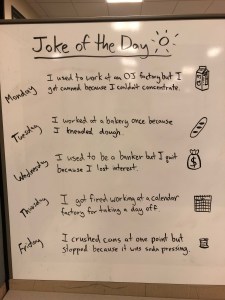 Joke of the Day
Monday
I used to work at an OJ factory but I
got canned because I couldn't concentrate.
Tuesday
I worked at a bakery once because
I kneaded dough.
Wednesday
I used to be a banker but I quit
because I lost interest.
Thursday
I got fired working at a calendar
factory for taking a day off.
Friday
I crushed cans at one point but
stopped because it was soda pressing.